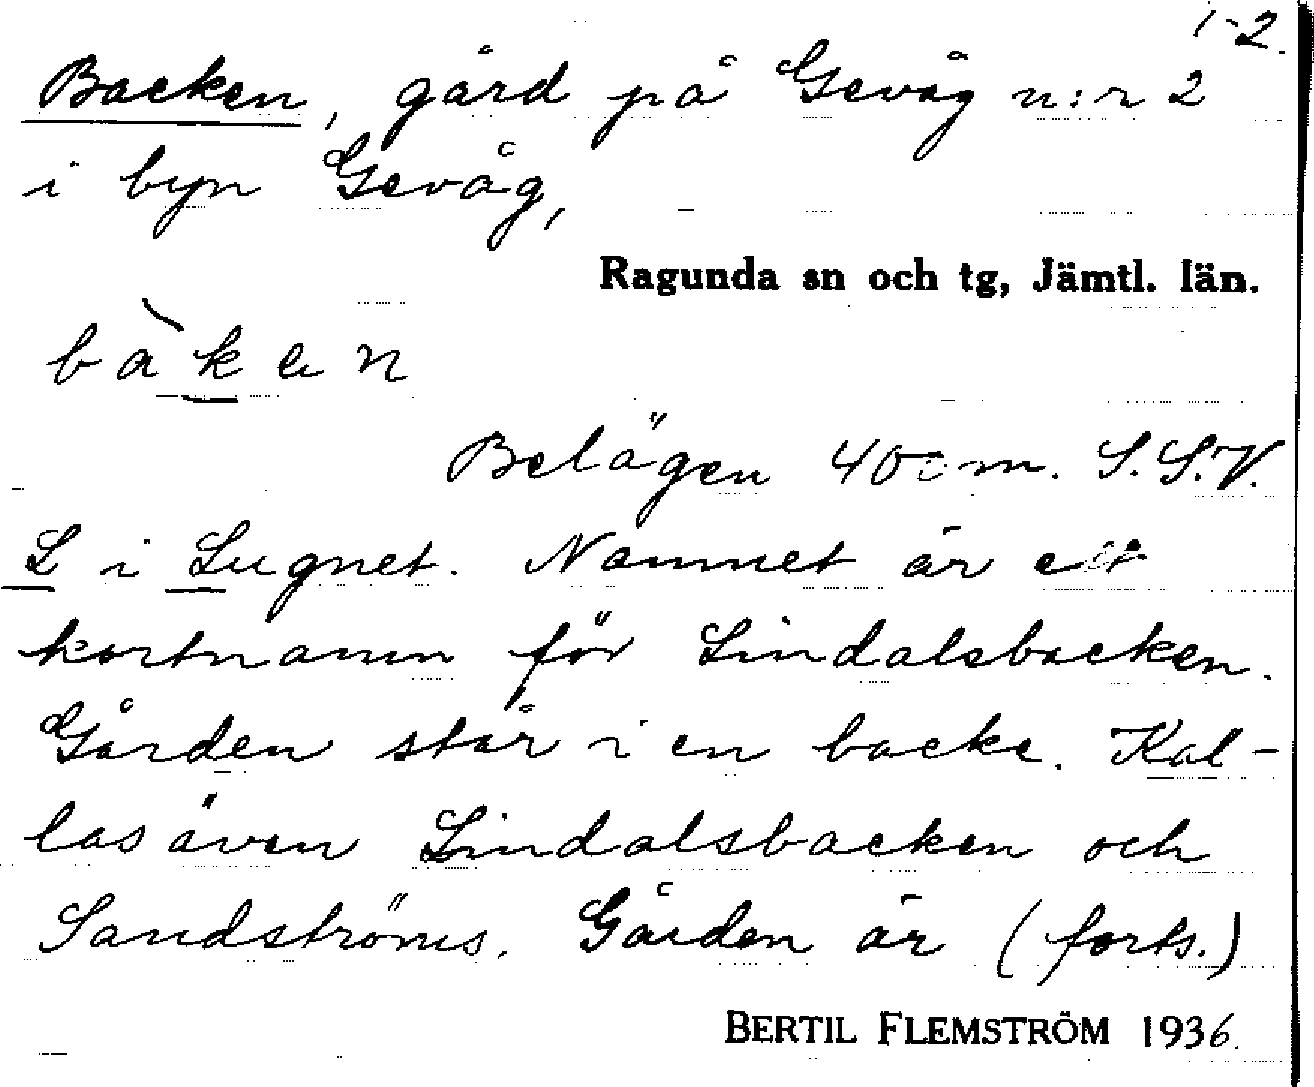 1-2.
Backen, gård på Gevåg n:r 2
i byn Gevåg,
Ragunda sn och tg, Jämtl. län.
bàken
Belägen 400 m. S.S.V.
L i Lugnet. Namnet är ett
kortnamn för Lindalsbacken.
Gården står i en backe. Kal-
las även Lindalsbacken och
Sandströms. Gården är (forts.)
BERTIL FLEMSTRÖM 1936.